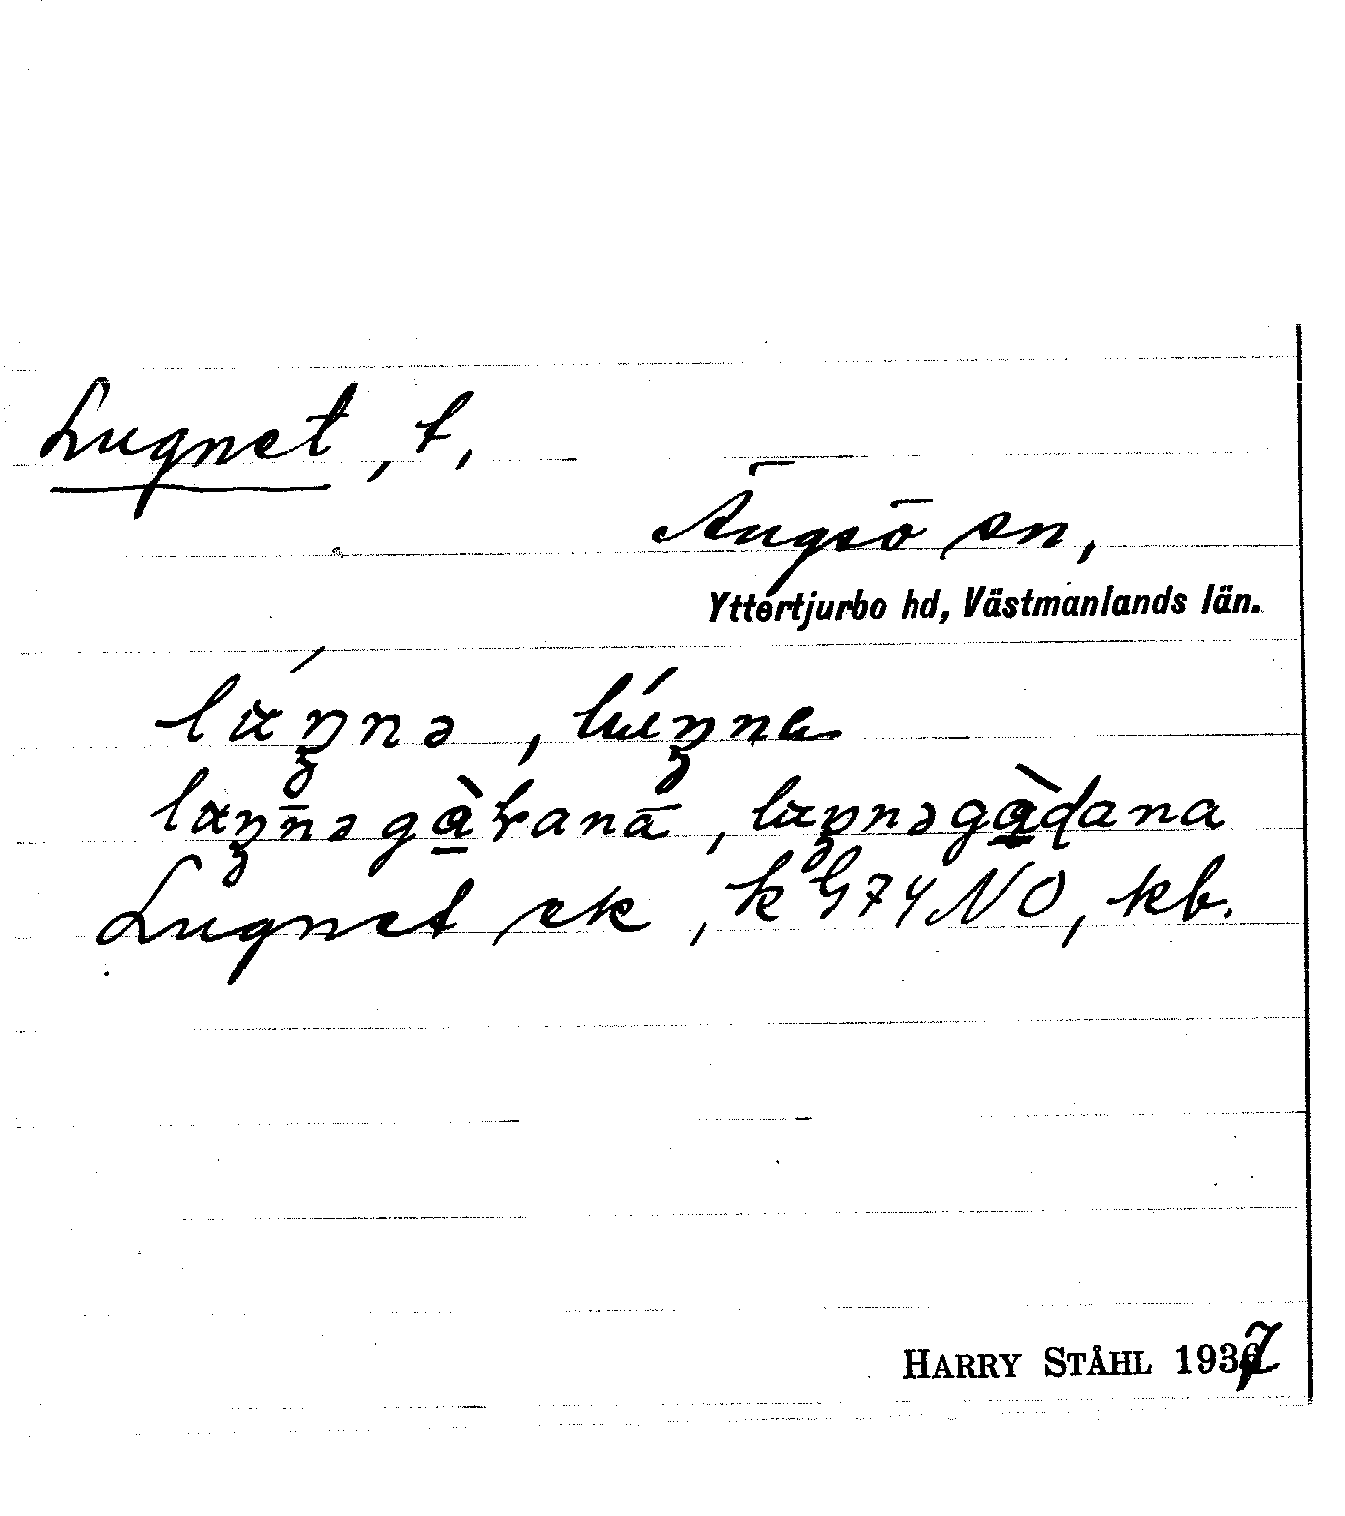 Lugnet, t,
Ängsö sn,
Yttertjurbo hd, Västmanlands län.
lúŋnə, lúŋna
luŋnəgàrana, luŋnəgàḍana
Lugnet ek, k G 74 NO, kb.
HARRY STÅHL 1937